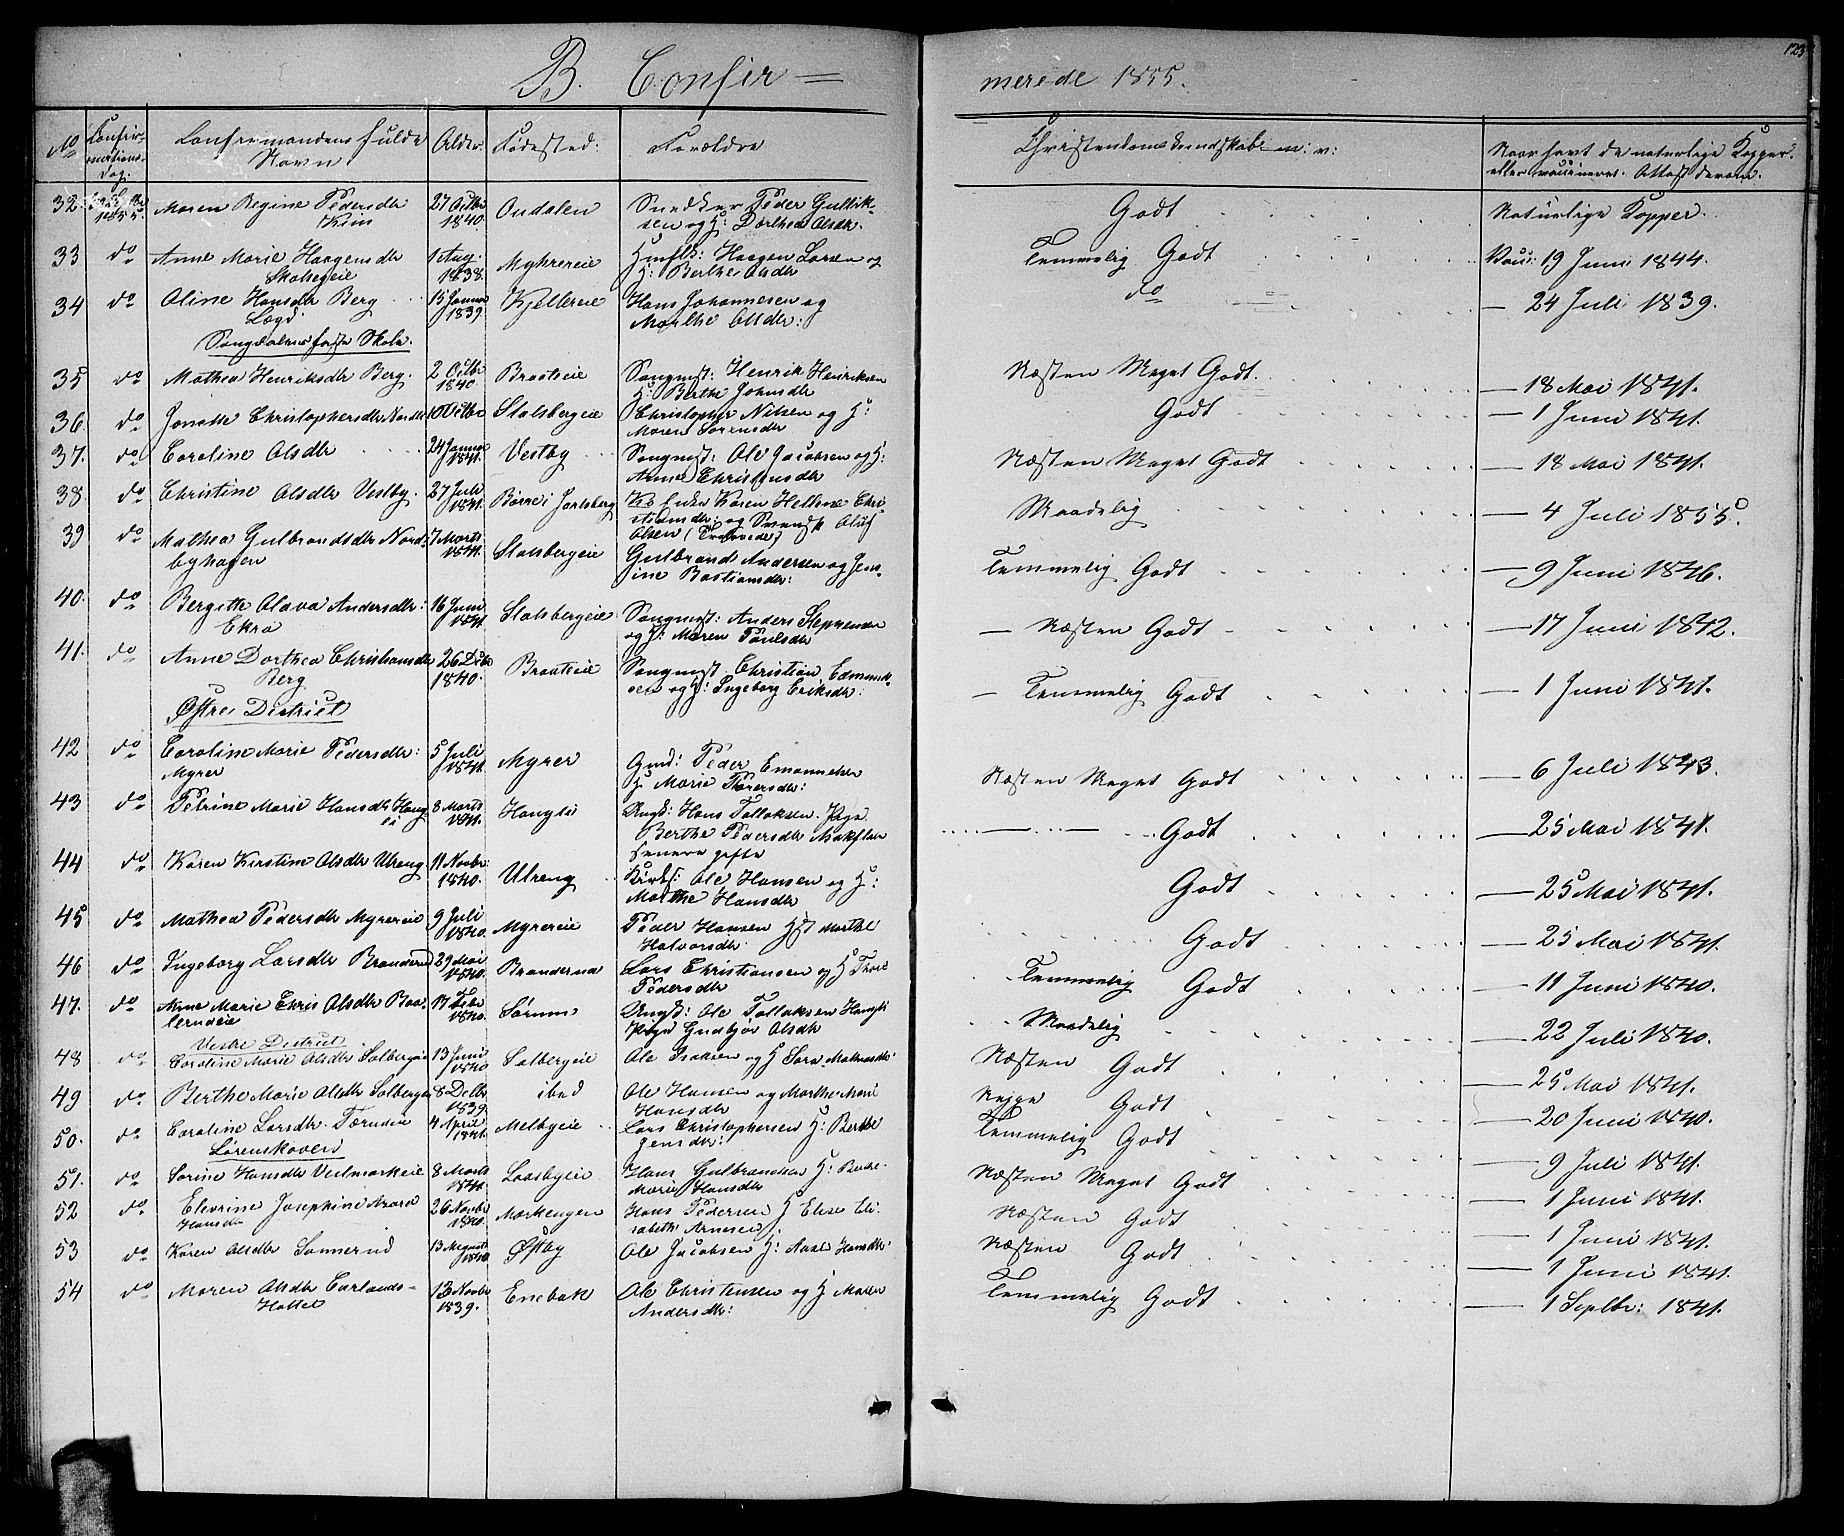 123
B. Confir=
merede 1855.
No Confir-mations-dag. Confirmandens fulde Navn Alder. Fødested: Forældre Christendomskundskab m: v: Naar havt de naturlige Kopper eller vaccineret. Attest derom.
32. 1855 Maren Regine Pedersdtr 27 Octbr 1840. Snedker Peder Gullik-
sen og H: Dorthea Olsdtr. Godt Naturlige Kopper.
33 do Anne Marie Haagensdtr 1 Aug. 1838. Myhrereie Huusm: Haagen Larsen og
H: Berthe Olsdtr Temmelig Godt Vacc: 19 Juni 1844.
34 do Oline Hansdtr Berg 15 Januar 1839 Kjellereie Hans Johannesen og
Lægd. Marthe Olsdtr: do — 24 Juli 1839.
Sangdalens faste Skole.
35 do Mathea Henriksdtr Berg. 2 Octbr 1840. Braateeie Saugmst: Henrik Henriksen
H: Berthe Johnsdtr Næsten Meget Godt. — 18 Mai 1841.
36. do Christophersdtr 10 Octbr Stalsbergeie Christopher Nilsen og H:
Maren Godt — 1 Juni 1841.
37. do Caroline Olsdtr 24 Januar 1841. Vestby Saugmst: Ole Jacobsen og H:
Anne Næsten Meget Godt — 18 Mai 1841.
38. do Christine Olsdtr Vestby. 27 Juli 1841. Børre i Jarlsberg Karen Helene
og Svensk Oluf
Olsen Maadelig — 4 Juli 1855.
39 do Mathea Gulbrandsdtr Nord- 7 Marts 1841. Stalsbergeie Gulbrand Andersen og Jen-
byhagen sine Bastiansdtr: Temmelig Godt — 9 Juni 1846.
40. do Bergitte Olava Andersdtr: 16 Juni 1841. Stalsbergeie Saugmst: Anders Steffensen
Ekra og H: Maren Paulsdtr — Næsten Godt — 17 Juni 1842.
41. do Anne Dorthea Christiansdtr 26 1840. Braateeie Saugmst Christian
Berg. og H: Ingeborg Eriksdtr: — Temmelig Godt — 1 Juni 1841.
Østre District
42 do Caroline Marie Pedersdtr: 5 Juli 1841. Myrer Gmd: Peder Emanuelsen
Myrer H Marie Næsten Meget Godt — 6 Juli 1843.
43 do Petrine Marie Hansdtr 8 Marts 1841. Ungk: Hans Tollaksen. Pige
Berthe Pedersdtr
senere gifte Godt — 25 Mai 1841.
44 do Karen Kirstine Olsdtr Utreng 11 Novbr 1840. Utreng Ole Hansen og H:
Marthe Hansdtr Godt — 25 Mai 1841.
45 do Mathea Pedersdtr Myrereie 9 Juli 1840. Myrereie Peder Hansen Marthe
Halvorsdtr Godt — 25 Mai 1841.
46 do Ingeborg Larsdtr Branderud 29 Mai 1840. Branderud Lars Christiansen og H
Pedersdtr Temmelig Godt — 11 Juni 1840.
47. do Anne Marie Olsdtr 1840. Sørum Ungk: Ole Tollaksen
Pige Gudbjør Olsdtr Maadelig — 22 Juli 1840.
Vestre District
48 do Caroline Marie Olsdtr Solbergeie 13 Juni 1840 Solbergeie Ole Isaksen og H Næsten Godt — 25 Mai 1841.
49 do Berthe Marie Olsdtr Solbergeie 8 1839. ibid Ole Hansen og Marthe Marie
Hansdtr Neppe Godt — 20 Juni 1840.
50. do Caroline Larsdtr 4 April 1841. Melbyeie Lars Christophersen H: Berthe
Jensdtr: Temmelig Godt — 9 Juli 1841.
Lørenskoven
51. do Sørine Hansdtr 8 Marts 1841. Losbyeie Hans Gulbrandsen H: Berthe
Marie Hansdtr Næsten Meget Godt — 1 Juni 1841.
52 do Josephine 26 Novbr 1840. Markengen Hans Pedersen H Else Eli-
Hansdtr sabeth Arnesen Næsten Godt — 1 Juni 1841.
53 do Karen Olsdtr Sønnerud 13 August 1840 Østby Ole Jacobsen H: Hansdtr Næsten Godt — 1 Juni 1841.
54 do Maren Olsdtr 13 Novbr 1839. Enebak Ole Christensen og H
Andersdtr: Temmelig Godt — 1 Septbr: 1841.